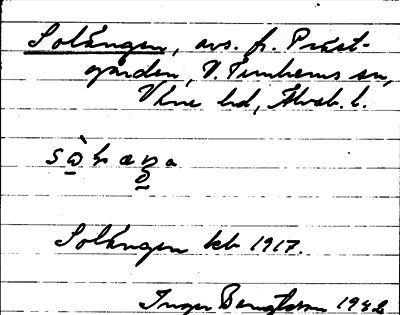 Solängen, avs. fr. Präst-
gården, V. Tunhems sn,
Väne hd, Älvsb. l.
Solängen kb 1917.
Inger Bengtsson 1942